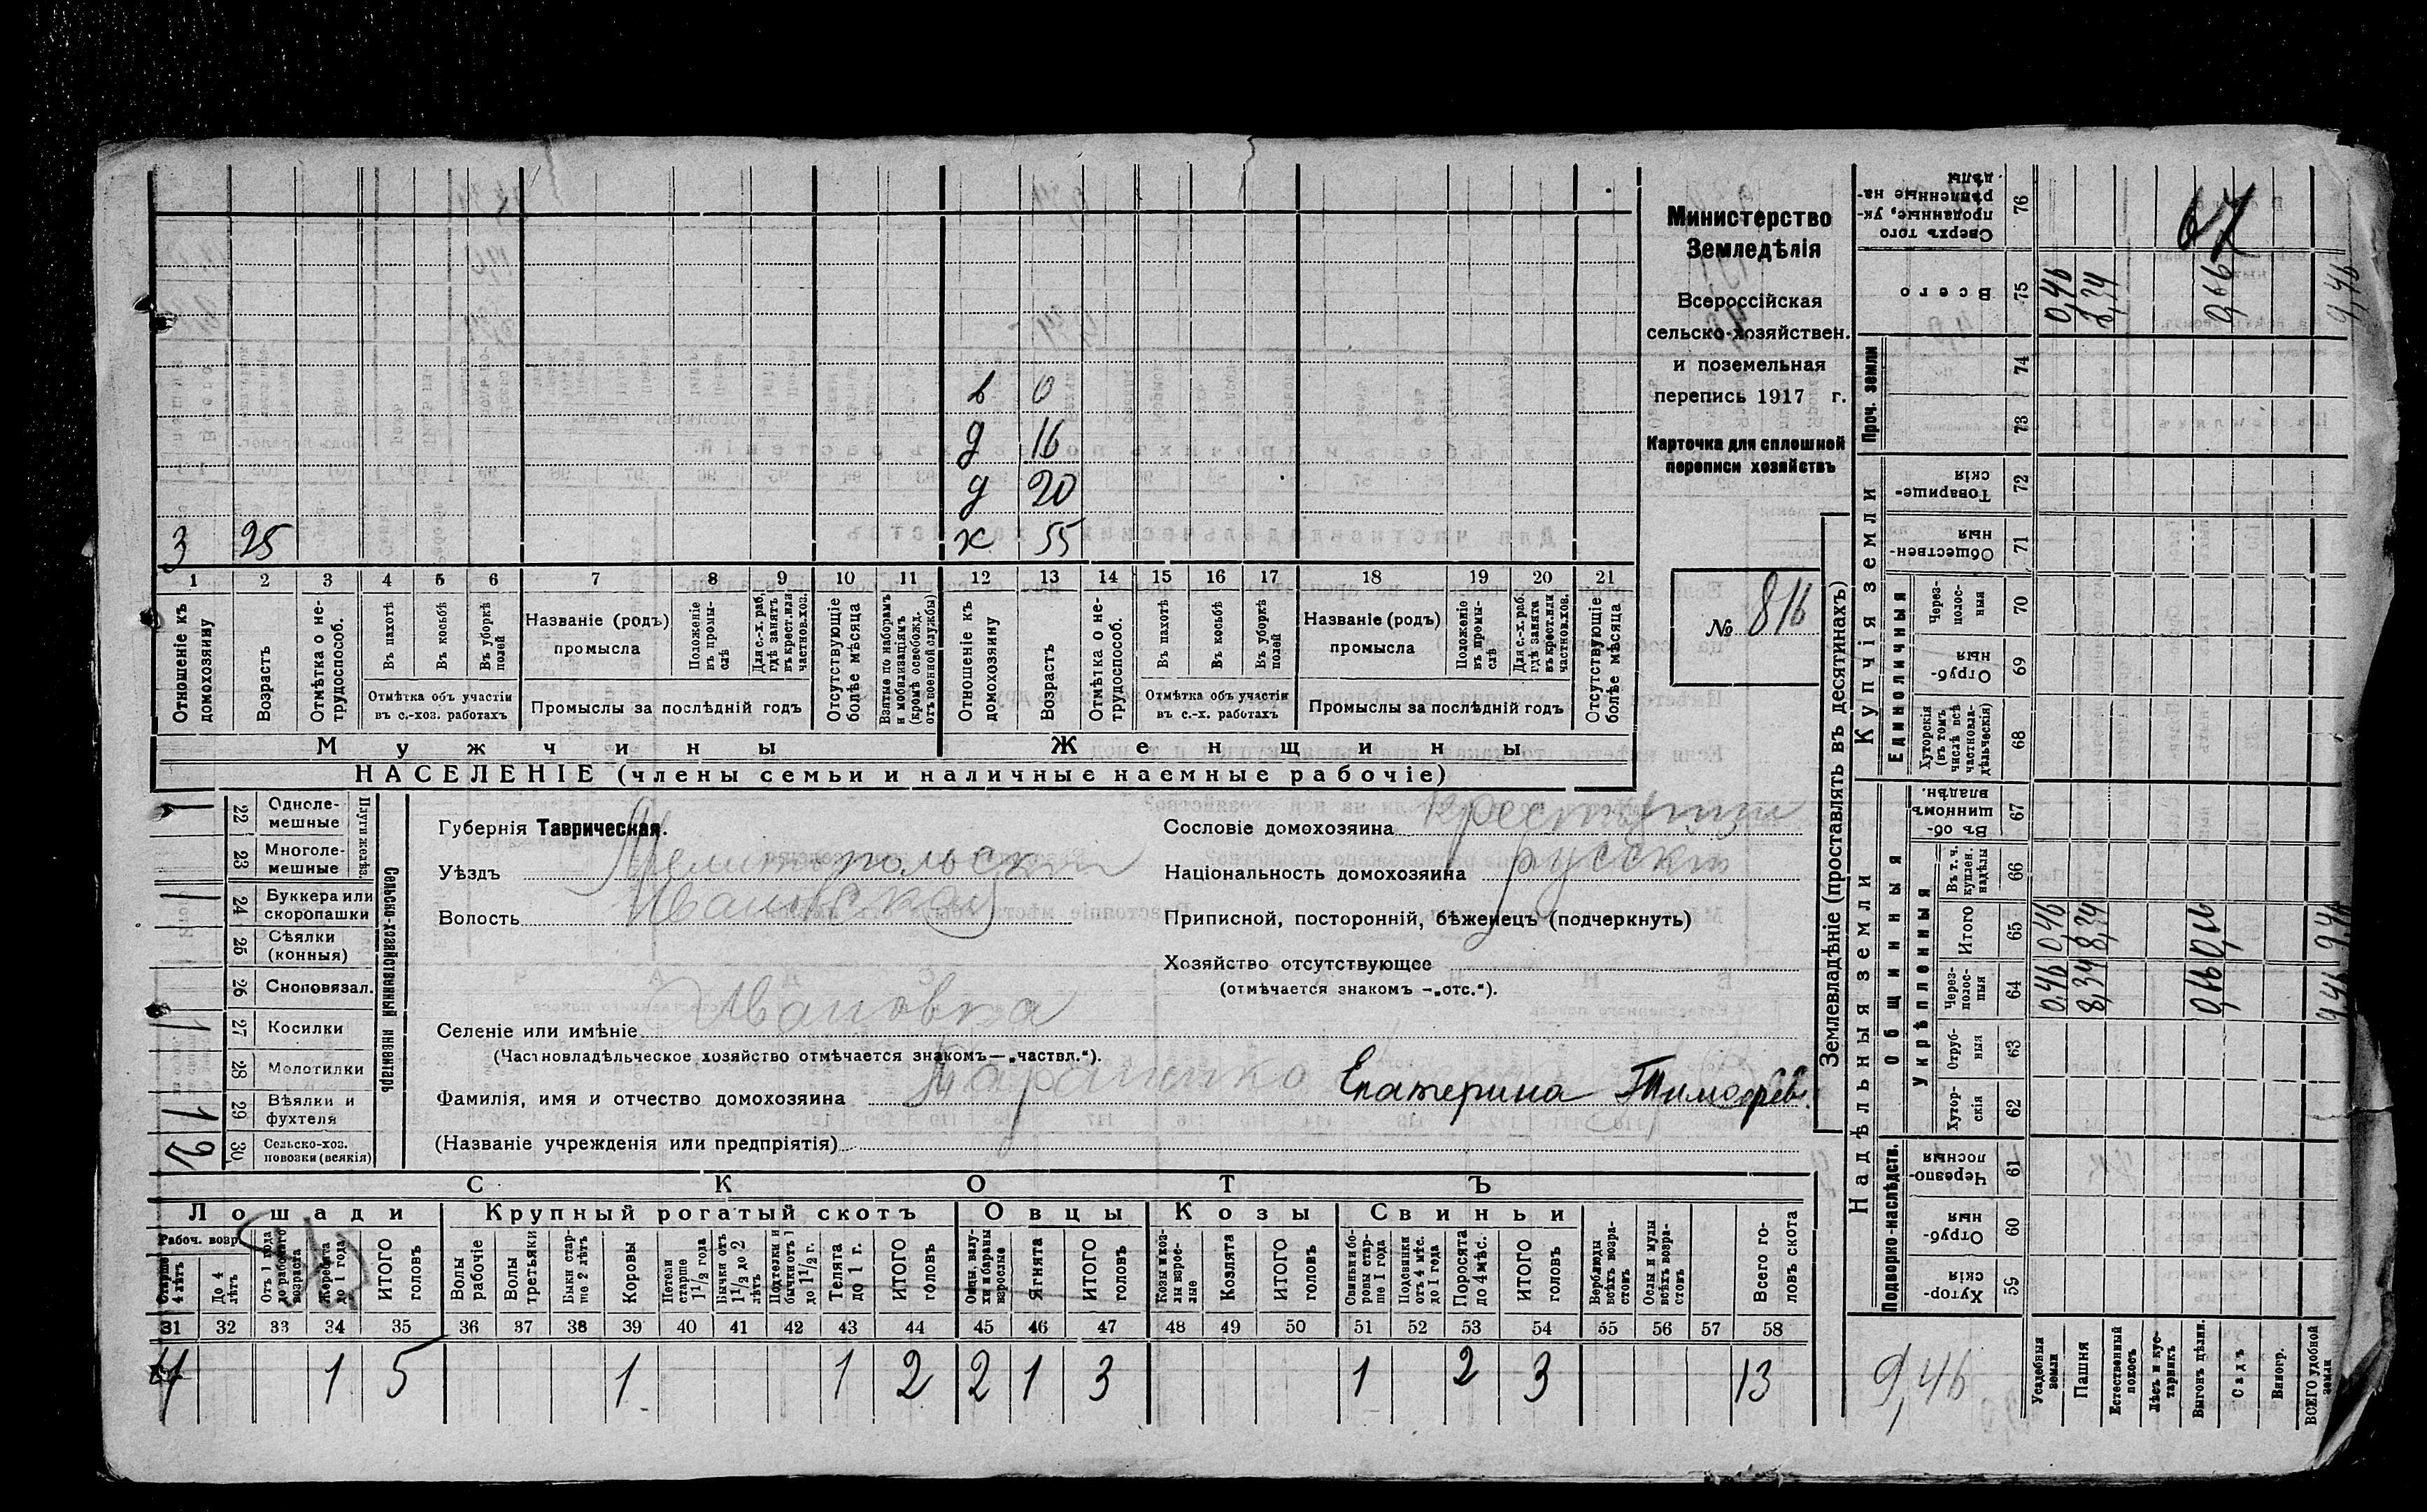 в 0
д 16
д 20
з 25 ж 55
1 2 3 4 5 6 7 8 9 10 11 12 13 14 15 16 17 18 19 20 21
Отношеніе къ домохозяину
Возрастъ
Отмѣтка о не-трудоспособ.
Въ пахотѣ
Въ косьбѣ
Въ уборкѣ полей
Отмѣтка объ участіи въ с.-хоз. работахъ
Названіе (родъ) промысла
Положеніе въ промы-слѣ
Для с.-х. раб. гдѣ занятъ въ крест. или частнов. хоз.
Промыслы за послѣдній годъ
Отсутствующіе болѣе мѣсяца
Взятые по наборамъ и мобилизаціямъ (кромѣ освобожд. отъ военной службы)
Отношеніе къ домохозяину
Возрастъ
Отмѣтка о не-трудоспособ.
Въ пахотѣ
Въ косьбѣ
Въ уборкѣ полей
Отмѣтка объ участіи въ с.-х. работахъ
Названіе (родъ) промысла
Положеніе въ промы-слѣ
Для с.-х. раб. гдѣ занята въ крест. или частнов. хоз.
Промыслы за послѣдній годъ
Отсутствующіе болѣе мѣсяца
Мужчины
Женщины
НАСЕЛЕНІЕ (члены семьи и наличные наемные рабочіе)
Министерство
Земледѣлія
Всероссійская
сельско-хозяйствен.
и поземельная
перепись 1917 г.
Карточка для сплошной
переписи хозяйствъ
№ 816
Сельско-хозяйственный инвентарь
Плуги желѣз.
1 22 Одноле-мешные
23 Многоле-мешные
1 24 Буккера или скоропашки
25 Сѣялки (конныя)
26 Сноповязал.
1 27 Косилки
28 Молотилки
1 29 Вѣялки и фухтеля
2 30 Сельско-хоз. повозки (всякія)
Губернія Таврическая.
Уѣздъ Мелитопольскій
Волость Ивановская
Селеніе или имѣніе Ивановка
(Частновладѣльческое хозяйство отмѣчается знакомъ—„частвл.“).
Фамилія, имя и отчество домохозяина Екатерина Тимофеев.
(Названіе учрежденія или предпріятія)
Сословіе домохозяина крестьянин
Національность домохозяина русскій
Приписной, посторонній, бѣженецъ (подчеркнуть)
Хозяйство отсутствующее
(отмѣчается знакомъ —„отс.“).
СКОТЪ
Лошади Крупный рогатый скотъ Овцы Козы Свиньи
Рабоч. возр.
Старше 4 лѣтъ
До 4 лѣтъ
Отъ 1 года до рабочаго возраста
Жеребята до 1 года
ИТОГО головъ
Волы рабочіе
Волы третьяки
Быки стар-ше 2 лѣтъ
Коровы
Нетели старше 1½ года
Бычки отъ 1½ до 2 лѣтъ
Подтелки и бычки отъ 1 до 1½ г.
Телята до 1 г.
ИТОГО головъ
Овцы, валу-хи и бараны взрослые
Ягнята
ИТОГО головъ
Козы и коз-лы взрос-лые
Козлята
ИТОГО головъ
Свиньи и бо-ровы стар-ше 1 года
Подсвинки отъ 4 мѣс. до 1 года
Поросята до 4 мѣс.
ИТОГО головъ
Верблюды всѣхъ возра-стовъ
Ослы и мулы всѣхъ возра-стовъ
Всего го-ловъ скота
31 32 33 34 35 36 37 38 39 40 41 42 43 44 45 46 47 48 49 50 51 52 53 54 55 56 57 58
4 1 5 1 1 2 2 1 3 1 2 3 13
Землевладѣніе (проставлять въ десятинахъ)
Надѣльныя земли
Купчія земли
Проч. земли
Подворно-наслѣдств.
Общинныя
Укрѣпленныя
Единоличныя
76 Сверхъ того проданные, ук-рѣпленные на-дѣлы
67
75 Всего 0,46 8,34 0,66 9,46
74
73
72 Товарище-скія
71 Обществен-ныя
70 Через-полос-ныя
69 Отруб-ныя
68 Хуторскія (въ томъ числѣ всѣ частновла-дѣльческія)
67 Въ об-щинномъ владѣн.
66 Въ т. ч. куплен. надѣлы
65 Итого 0,46 8,34 9,46
64 Через-полос-ныя 0,46 8,34 0,66 9,46
63 Отруб-ныя
62 Хутор-скія
61 Черезпо-лосныя
60 Отруб-ныя
59 Хутор-скія
9,46
Усадебныя земли
Пашня
Естественный покосъ
Лѣсъ и кус-тарникъ
Выгонъ цѣлин.
Садъ
Виногр.
ВСЕГО удобной земли